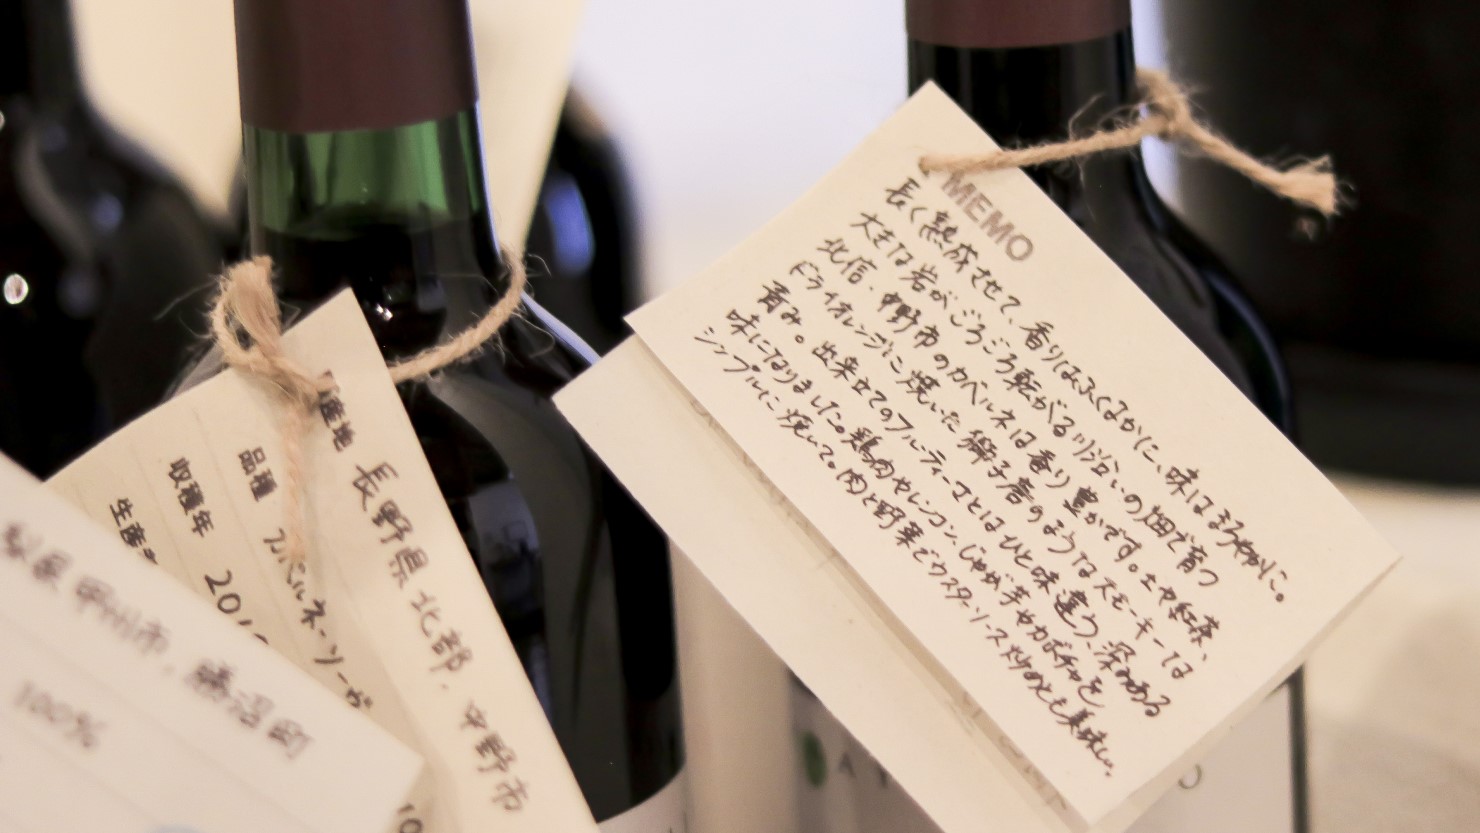 MEMO
長く熟成させて、香りはふくよかに、味はまろやかに。
大きな岩がごろごろ転がる川沿いの畑で育つ
北信・中野市のカベルネは香り豊かです。土や紅茶、
ドライオレンジに焼いた獅子唐のようなスモーキーな
青み。出来立てのフルーティーさとはひと味違う、深みある
味になりました。鶏肉やレンコン、じゃが芋やカボチャを
シンプルに焼いて。肉と野菜でウスターソース炒めも美味しい。
産地 長野県北部・中野市
品種 カベルネ・ソーヴィ
収穫年 201
生産
梨県甲州市、勝沼町
100%
10